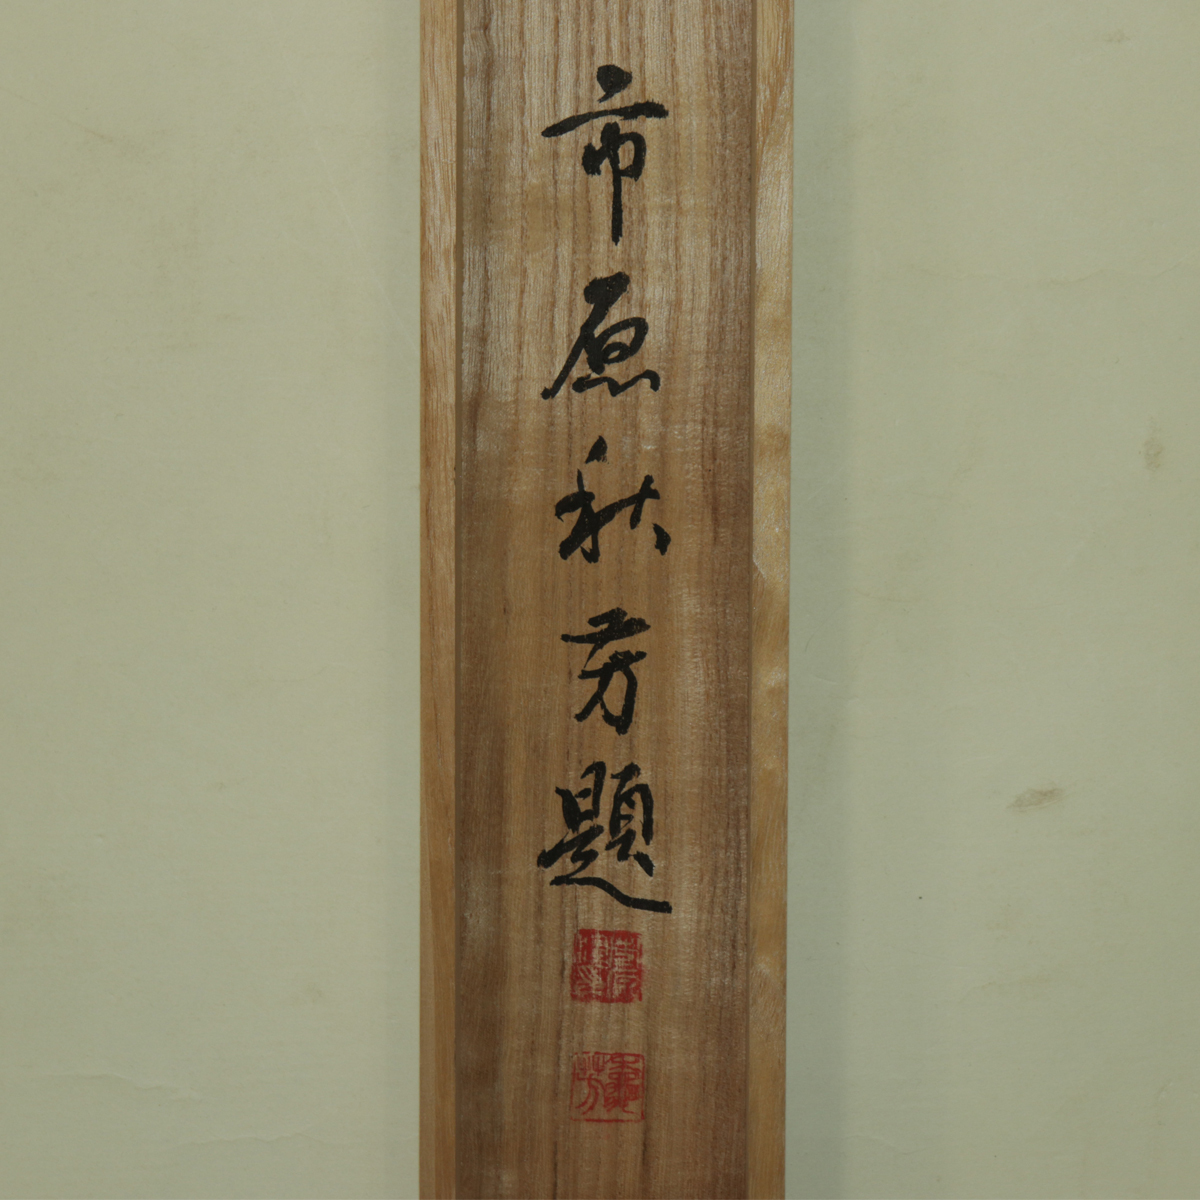 市原秋芳題